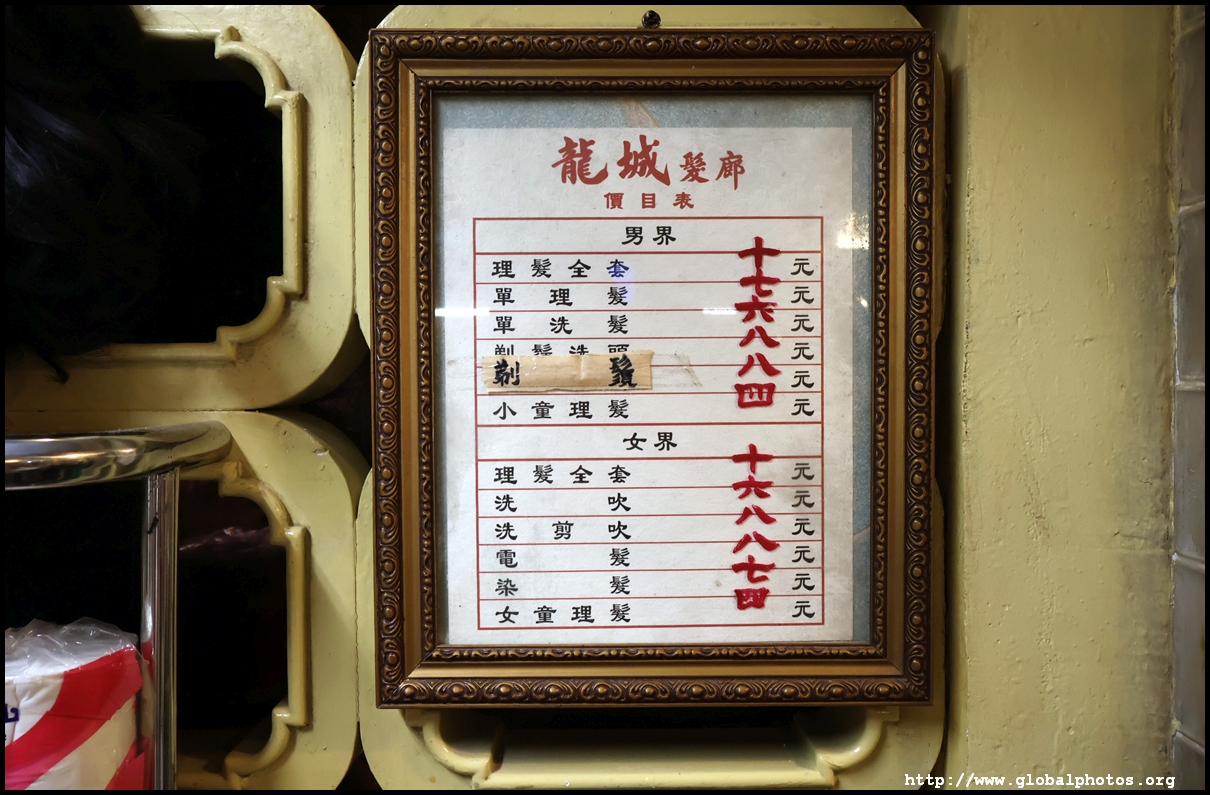 龍城髮廊
價目表
男界
理髮全套 十元
單理髮 七元
單洗髮 六元
八元
剃鬚 八元
小童理髮 四元
女界
理髮全套 十元
洗吹 六元
洗剪吹 八元
電髮 八元
染髮 七元
女童理髮 四元
http://www.globalphotos.org